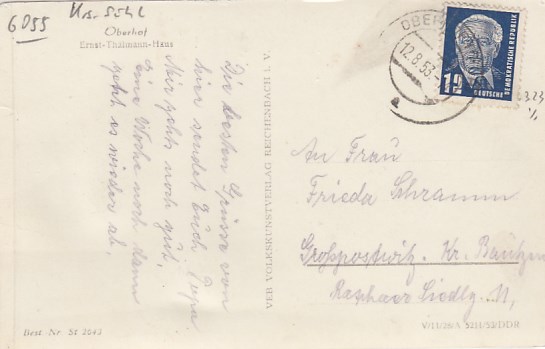 6055 Krs. Suhl
Oberhof
Ernst-Thälmann-Haus
Die besten Grüsse von
hier sendet Euch Papa
Mir gehts noch gut.
eine Woche noch dann
geht es wieder ab.
Best.-Nr. St 2043
VEB VOLKSKUNSTVERLAG REICHENBACH i. V.
OBER
12.8.53
12
DEUTSCHE
DEMOKRATISCHE REPUBLIK
323
An Frau
Frieda Schramm
Grosspostwitz. Kr. Bautzen
Raschaer Siedlg.
V/11/28/A 3211/52/DDR